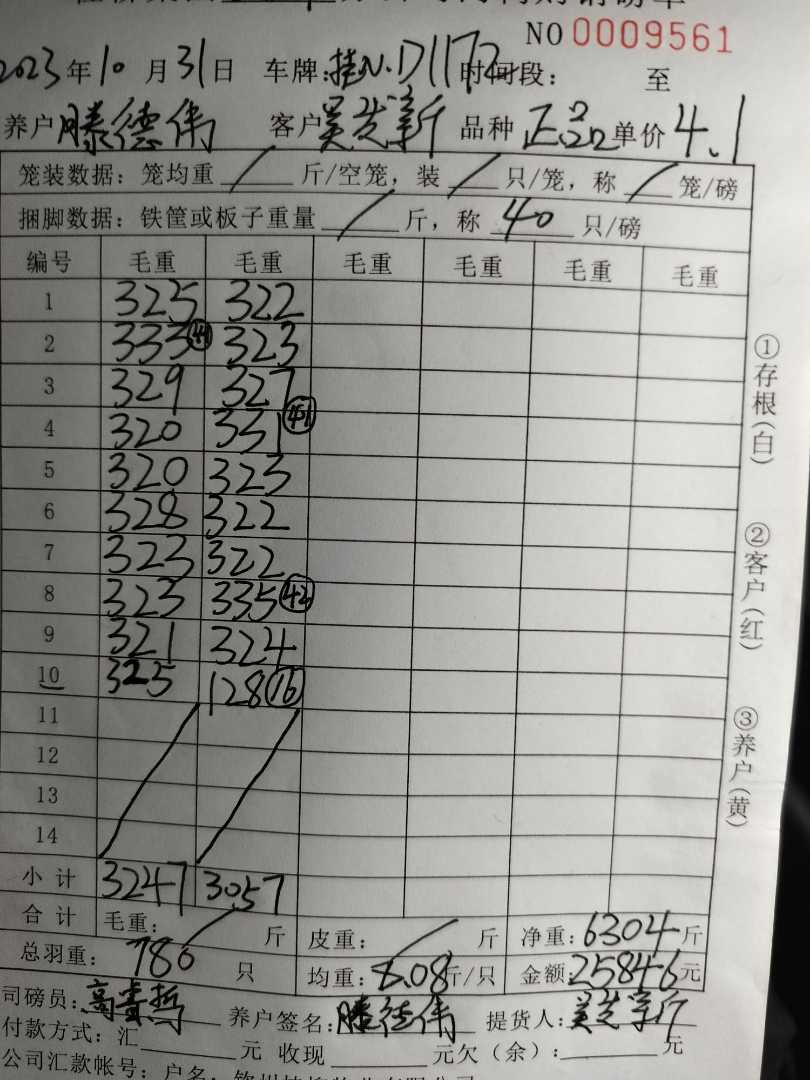 NO 0009561
2023年10月31日 车牌:桂N.D1172 时间段: 至
养户 滕德伟 客户 吴发新 品种 正品 单价 4.1
笼装数据：笼均重 / 斤/空笼，装 / 只/笼，称 / 笼/磅
捆脚数据：铁筐或板子重量 / 斤，称 40 只/磅
编号 毛重 毛重 毛重 毛重 毛重 毛重
1 325 322
2 333 323
3 329 327
4 320 331 41
5 320 323
6 328 322
7 323 322
8 323 335 42
9 321 324
10 325 128 16
11
12
13
14
小计 3247 3057
合计 毛重: / 斤 皮重: / 斤 净重: 6304 斤
总羽重: 780 只 均重: 8.08 斤/只 金额: 25846 元
司磅员: 高贵哲 养户签名: 滕德伟 提货人: 吴发新
付款方式: 汇 元 收现 元欠（余）: 元
公司汇款帐号: 户名:
①存根(白)
②客户(红)
③养户(黄)